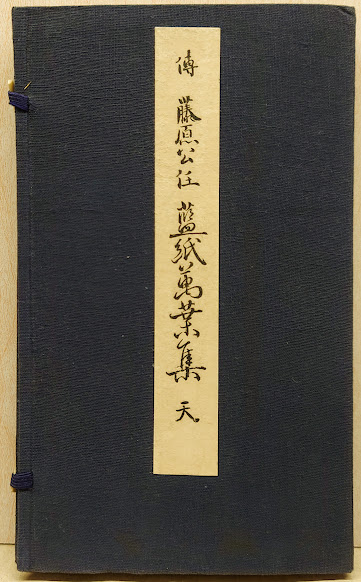 傳 藤原公任 藍紙萬葉集 天